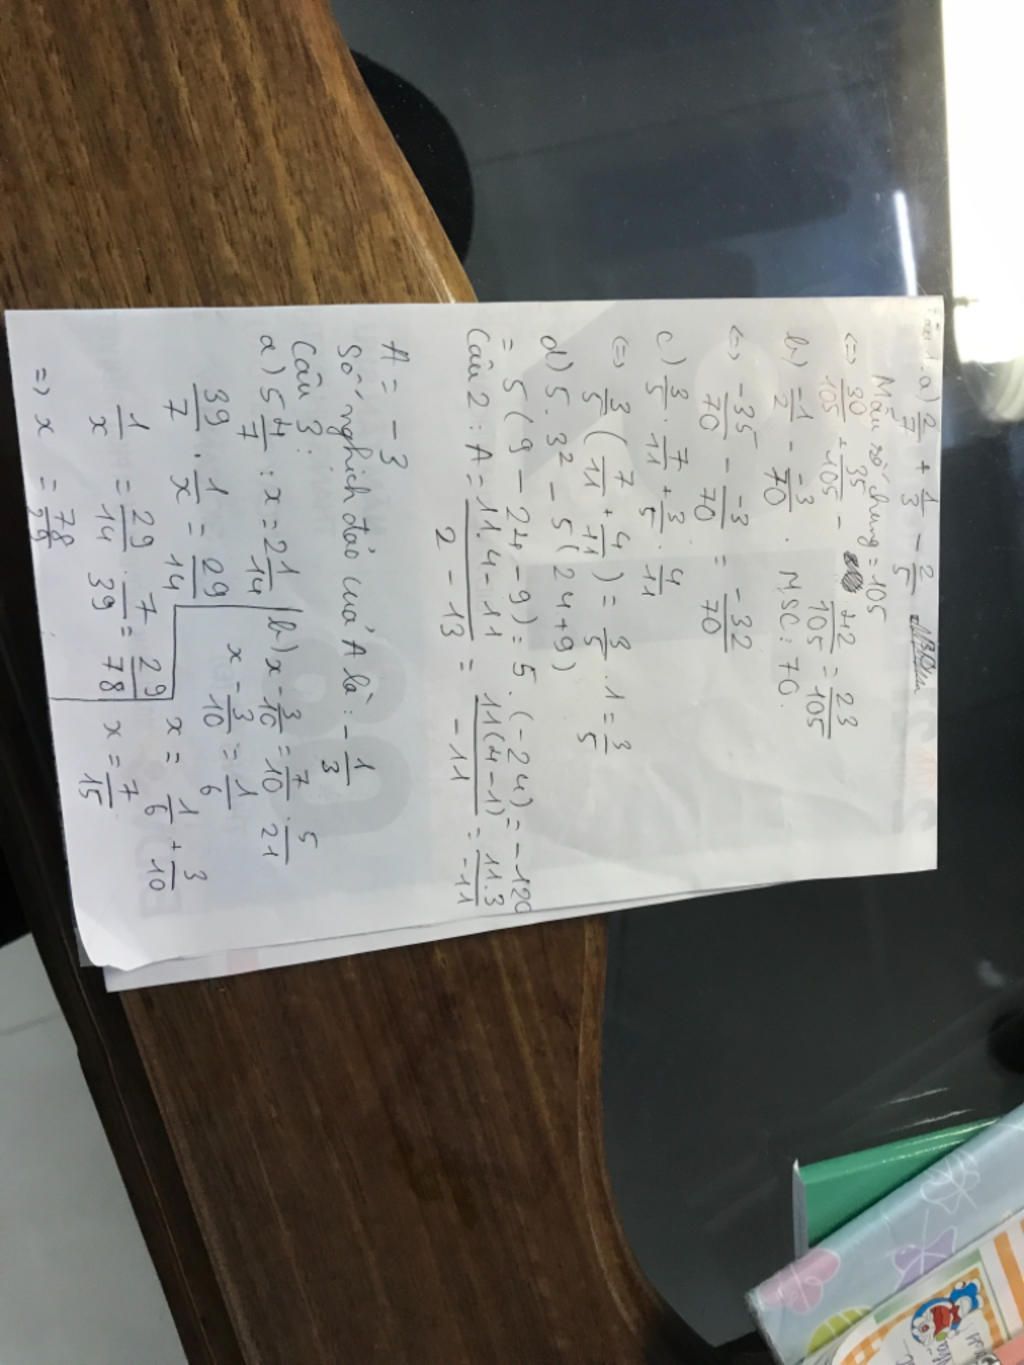 1.a) 2/7 + 1/3 - 2/5
Mẫu số chung = 105
<=> 30/105 + 35/105 - 42/105 = 23/105
b) -1/2 - -3/70 . MSC: 70.
<=> -35/70 - -3/70 = -32/70
c) 3/5 . 7/11 + 3/5 . 4/11
<=> 3/5 (7/11 + 4/11) = 3/5 . 1 = 3/5
d) 5 . 3² - 5 (24+9)
= 5 (9 - 24 - 9) = 5 . (-24) = -120
Câu 2 : A = 11.4-11 / 2-13 = 11(4-1) / -11 = 11.3 / -11
A = -3
Số nghịch đảo của A là : -1/3
Câu 3 :
a) 5 4/7 : x = 2 1/14
39/7 . 1/x = 29/14
1/x = 29/14 . 7/39 = 29/78
=> x = 78/29
b) x - 3/10 = 7/10 . 5/21
x - 3/10 = 1/6
x = 1/6 + 3/10
x = 7/15